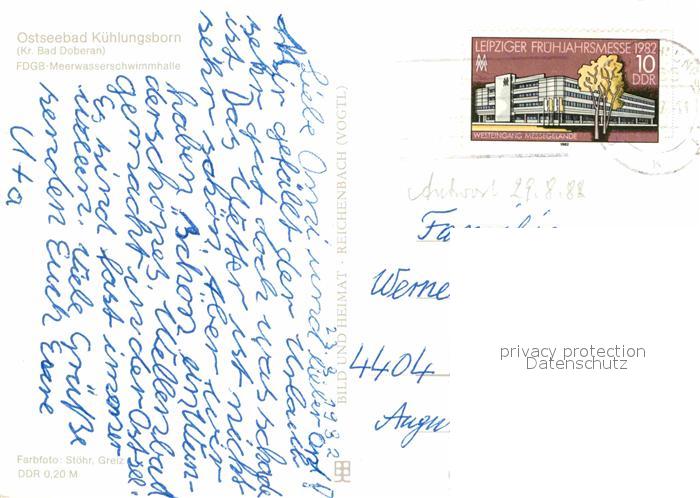 Ostseebad Kühlungsborn
(Kr. Bad Doberan)
FDGB-Meerwasserschwimmhalle
23.8.1982
Liebe Omi und lieber Opi!
Mir gefällt der Urlaub
sehr gut doch was schade
ist Das Wetter ist nicht
sehr schön. Aber wir
haben schon ein wun-
derschönes Wellenbad
gemacht in der Ostsee.
Es sind fast immer
Wellen. Viele Grüße
senden Euch Eure
Uta
BILD UND HEIMAT · REICHENBACH (VOGTL)
Farbfoto: Stöhr, Greiz
DDR 0,20 M
LEIPZIGER FRÜHJAHRSMESSE 1982
10
DDR
WESTEINGANG MESSEGELÄNDE
1982
Antwort 29.8.82
Familie
Werne
4404
privacy protection
Datenschutz